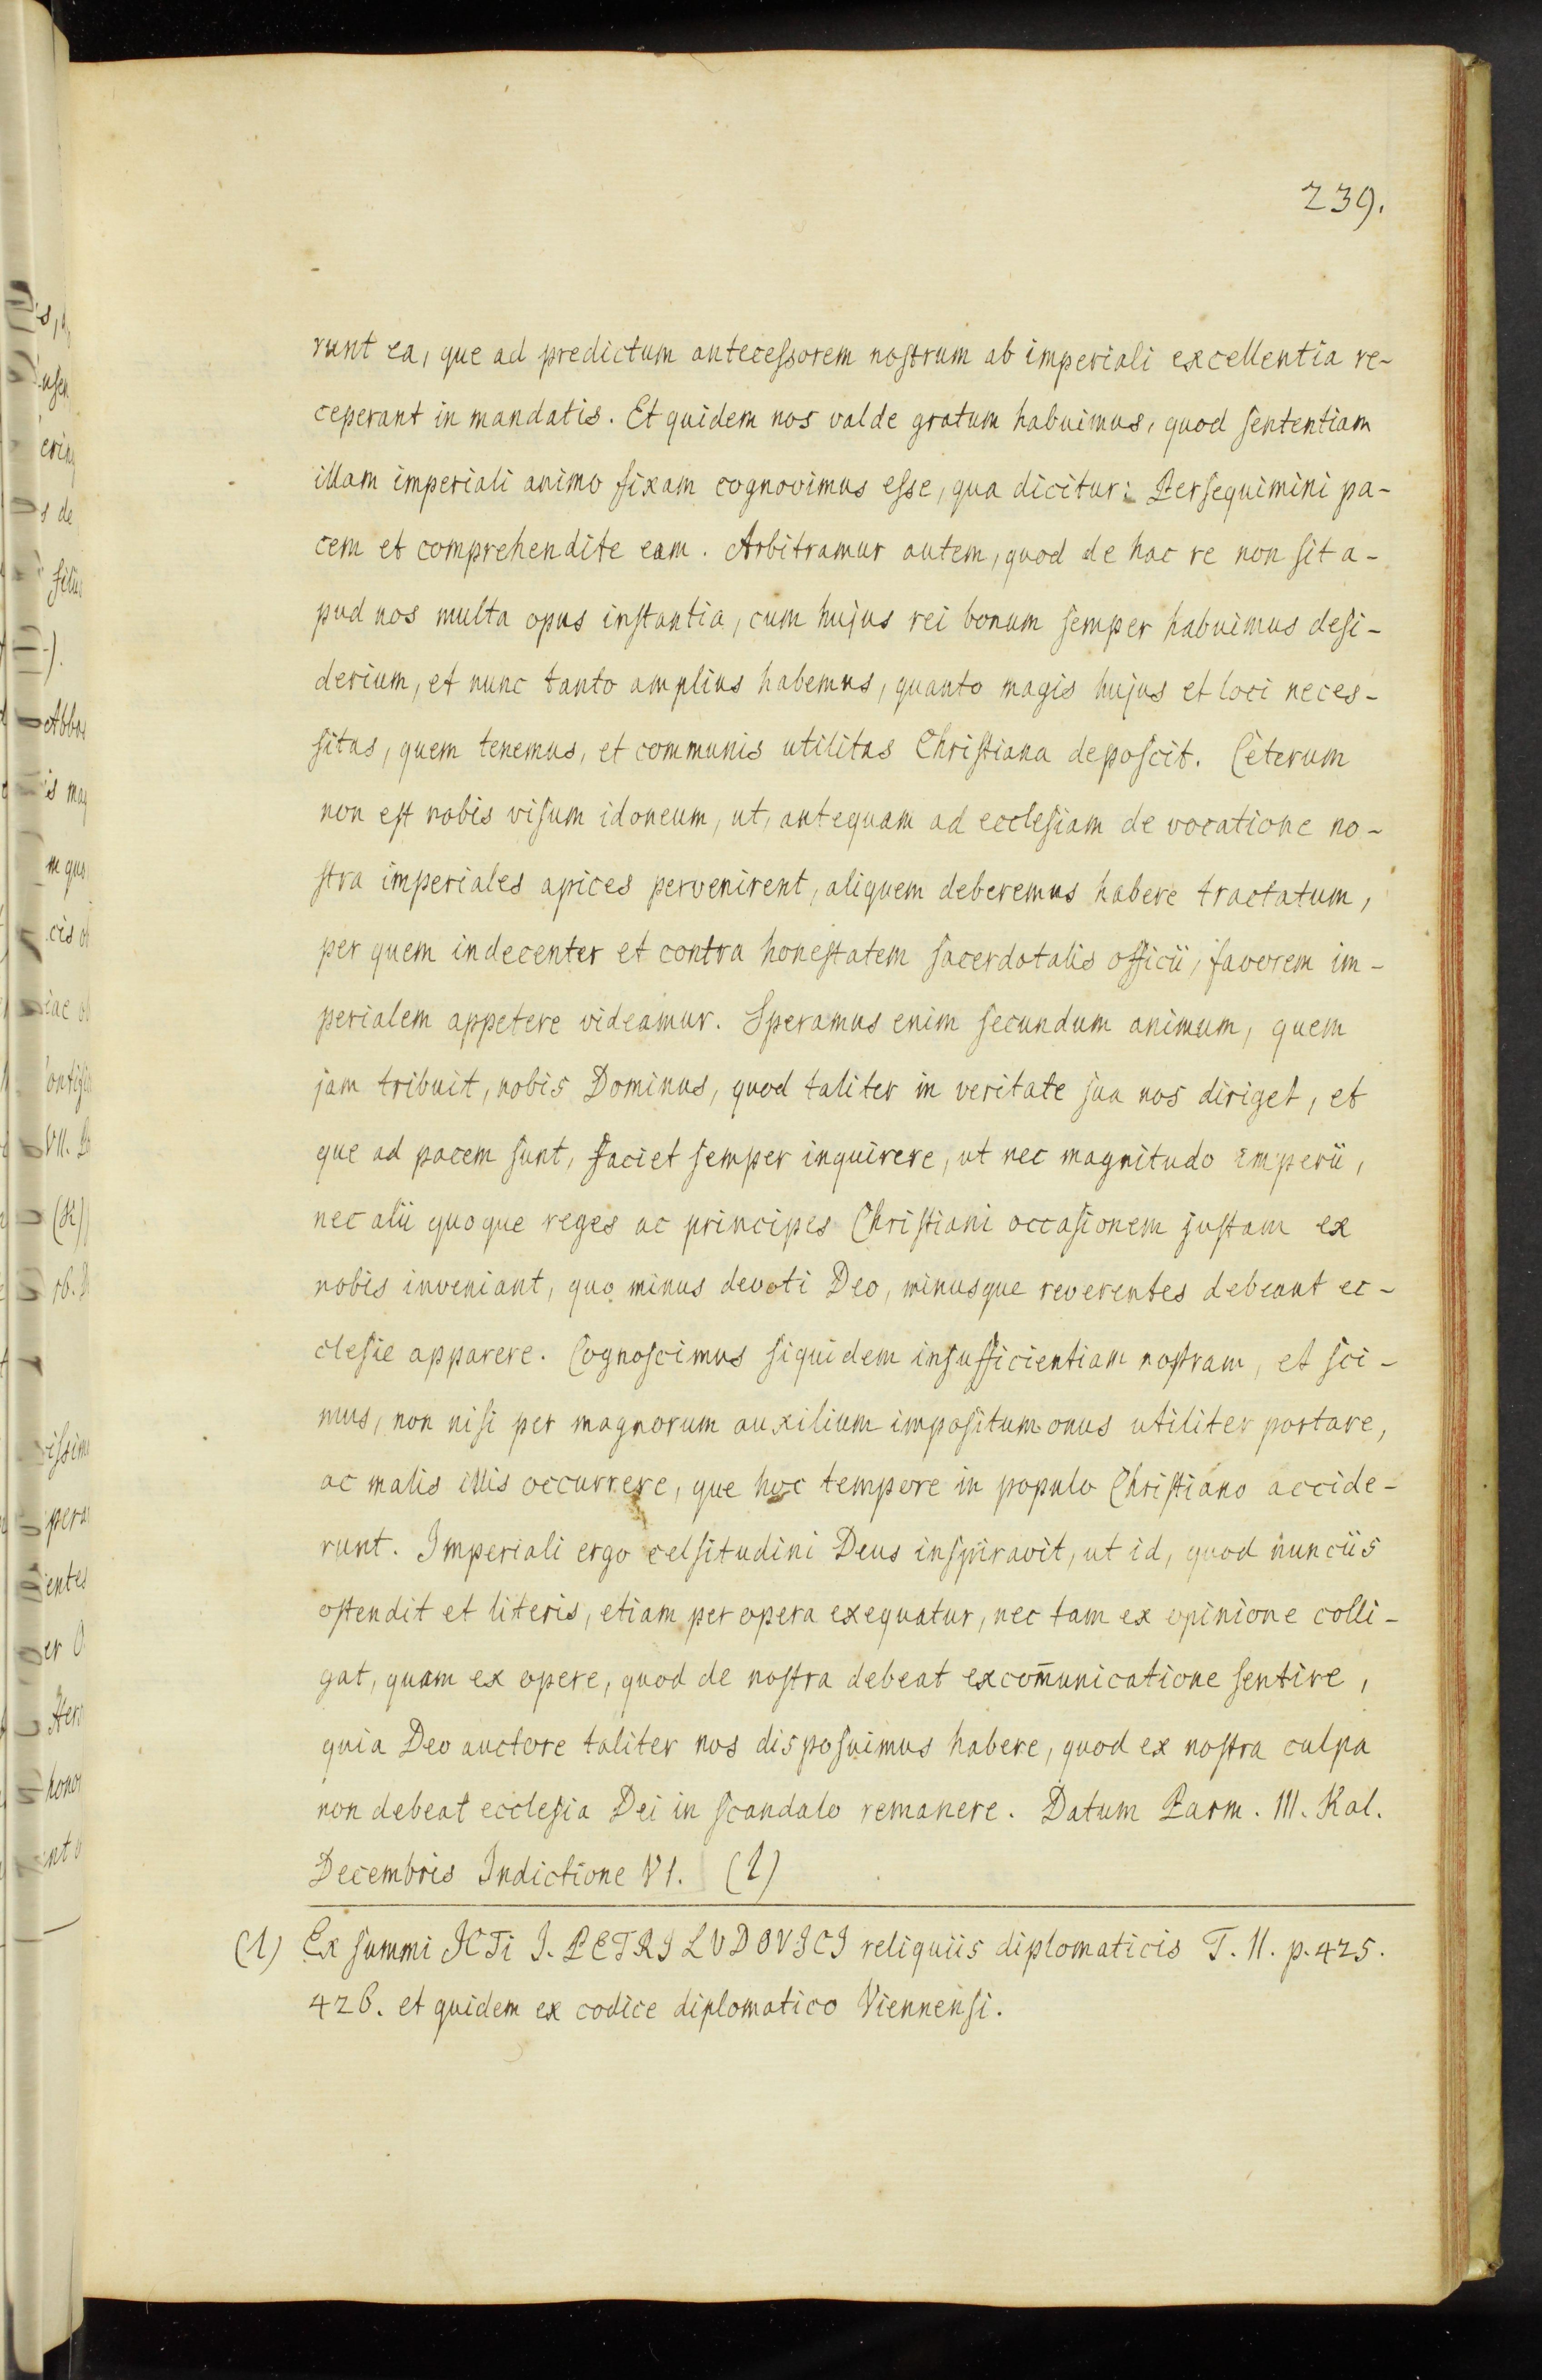 239.
runt ea, que ad predictum antecessorem nostrum ab imperiali excellentia re-
ceperant in mandatis. Et quidem nos valde gratum habuimus, quod sententiam
illam imperiali animo fixam cognovimus esse, qua dicitur: Persequimini pa-
cem et comprehendite eam. Arbitramur autem, quod de hac re non sit a-
pud nos multa opus instantia, cum hujus rei bonum semper habuimus desi-
derium, et nunc tanto amplius habemus, quanto magis hujus et loci neces-
sitas, quem tenemus, et communis utilitas Christiana deposcit. Ceterum
non est nobis visum idoneum, ut, antequam ad ecclesiam de vocatione no-
stra imperiales apices pervenirent, aliquem deberemus habere tractatum,
per quem indecenter et contra honestatem sacerdotalis officii, favorem im-
perialem appetere videamur. Speramus enim secundum animum, quem
jam tribuit, nobis Dominus, quod taliter in veritate sua nos diriget, et
que ad pacem sunt, faciet semper inquirere, ut nec magnitudo Imperii,
nec alii quoque reges ac principes Christiani occasionem justam ex
nobis inveniant, quo minus devoti Deo, minusque reverentes debeant ec-
clesie apparere. Cognoscimus siquidem insufficientiam nostram, et sci-
mus, non nisi per magnorum auxilium impositum onus utiliter portare,
ac malis illis occurrere, que hoc tempore in populo Christiano accide-
runt. Imperiali ergo celsitudini Deus inspiravit, ut id, quod nunciis
ostendit et literis, etiam per opera exequatur, nec tam ex opinione colli-
gat, quam ex opere, quod de nostra debeat excom̄unicatione sentire,
quia Deo auctore taliter nos disposuimus habere, quod ex nostra culpa
non debeat ecclesia Dei in scandalo remanere. Datum Parm. III. Kal.
Decembris Indictione VI. (1)
(1) Ex summi ICTi I. PETRI LVDOVICI reliquiis diplomaticis T. II. p. 425.
426. et quidem ex codice diplomatico Viennensi.